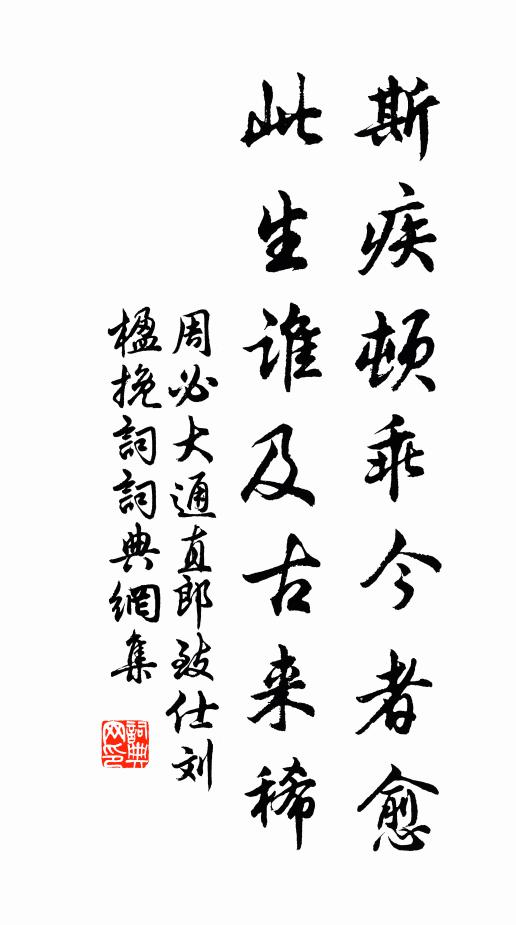 斯疾顿乖今者愈
此生谁及古来稀
周必大通直郎致仕刘
楹挽詞詞典網集
詞典網印